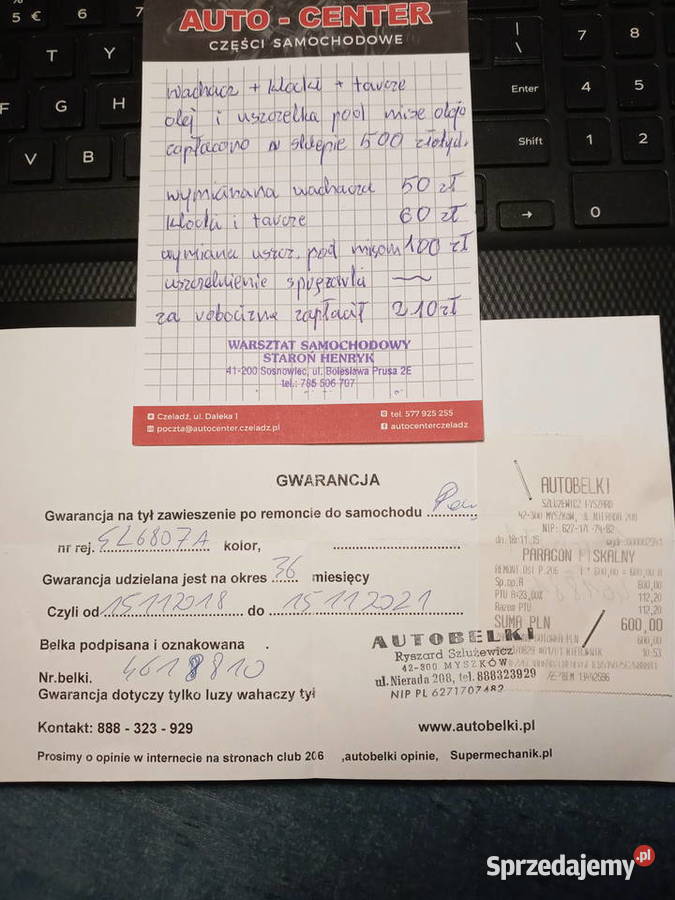 5 €
6
7
7
8
9
T
Y
\
Enter
4
5
6
F
G
H
V
B
Shift
1
2
→
0
AUTO - CENTER
CZĘŚCI SAMOCHODOWE
wachacz + klocki + tarcze
olej i uszczelka pod mise oleju
zapłacono w sklepie 500 złotych.
wymianana wachacza 50 zł
klocka i tarcze 60 zł
wymiana uszcz. pod misom 100 zł
uszczelnienie spręzarki ~
za robocizne zapłacił 210 zł
WARSZTAT SAMOCHODOWY
STAROŃ HENRYK
41-200 Sosnowiec, ul. Bolesława Prusa 2E
tel.: 785 506 707
Czeladź, ul. Daleka 1
tel. 577 925 255
poczta@autocenter.czeladz.pl
autocenterczeladz
GWARANCJA
Gwarancja na tył zawieszenie po remoncie do samochodu
nr rej. SL6807A kolor,
Gwarancja udzielana jest na okres 36 miesięcy
Czyli od 15 11 2018 do 15 11 2021
Belka podpisana i oznakowana .
Nr.belki. 4618810
Gwarancja dotyczy tylko luzy wahaczy tył
Kontakt: 888 - 323 - 929
www.autobelki.pl
Prosimy o opinie w internecie na stronach club 206 ,autobelki opinie, Supermechanik.pl
AUTOBELKI
Ryszard Szlużewicz
42-300 MYSZKÓW
ul. Nierada 208, tel. 888323929
NIP PL 6271707482
AUTOBELKI
SZLUZEWICZ RYSZARD
42-300 MYSZKÓW, UL NIERADA 208
PARAGON FISKALNY
Sp.op.A 600,00
PTU A=23,00% 112,20
Razem PTU 112,20
SUMA PLN 600,00
600,00
10:53
Sprzedajemy.pl